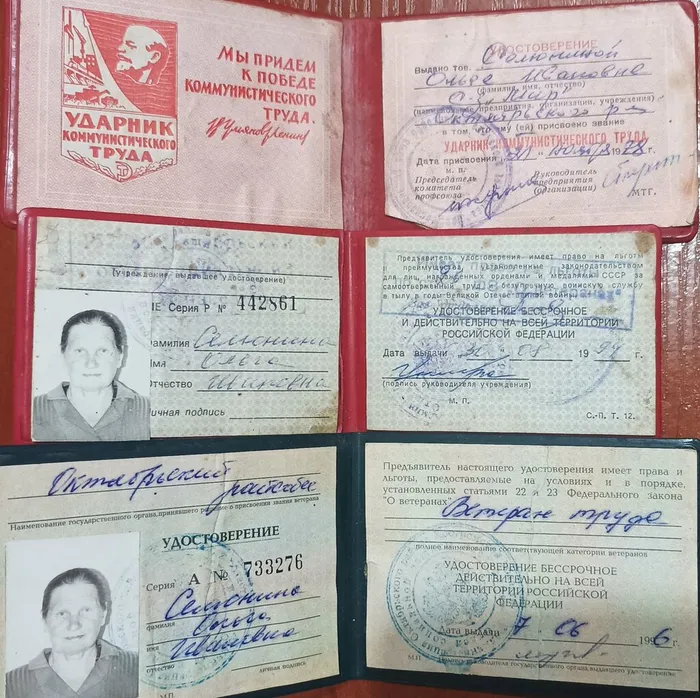 Мы придем
к победе
коммунистического
труда.
УДАРНИК
КОММУНИСТИЧЕСКОГО
ТРУДА
УДОСТОВЕРЕНИЕ
Выдано тов. Селюниной
Ольге Ивановне
(фамилия, имя, отчество)
"Мир"
(наименование предприятия, организации, учреждения)
Октябрьского р-на
в том, что ему (ей) присвоено звание
УДАРНИК КОММУНИСТИЧЕСКОГО ТРУДА
Дата присвоения ноября 1978 г.
м. п.
Председатель
комитета
профсоюза
Руководитель
предприятия
(организации)
МТГ.
(учреждение, выдавшее удостоверение)
ИЕ Серия Р № 442861
Фамилия Селюнина
Имя Ольга
Отчество Ивановна
Личная подпись
Предъявитель удостоверения имеет право на льготы
и преимущества, установленные законодательством
для лиц, награжденных орденами и медалями СССР за
самоотверженный труд и безупречную воинскую службу
в тылу в годы Великой Отечественной войны.
УДОСТОВЕРЕНИЕ БЕССРОЧНОЕ
И ДЕЙСТВИТЕЛЬНО НА ВСЕЙ ТЕРРИТОРИИ
РОССИЙСКОЙ ФЕДЕРАЦИИ
Дата выдачи 08 199 г.
(подпись руководителя учреждения)
М. П.
С.-П. Т. 12.
Октябрьский
райсобес
Наименование государственного органа, принявшего решение о присвоении звания ветерана
УДОСТОВЕРЕНИЕ
Серия А № 733276
Селюнина
фамилия
Ольга
имя
Ивановна
отчество
личная подпись
МП
Предъявитель настоящего удостоверения имеет права и
льготы, предоставляемые на условиях и в порядке,
установленных статьями 22 и 23 Федерального закона
"О ветеранах" Ветеран труда
полное наименование соответствующей категории ветеранов
УДОСТОВЕРЕНИЕ БЕССРОЧНОЕ
ДЕЙСТВИТЕЛЬНО НА ВСЕЙ
ТЕРРИТОРИИ РОССИЙСКОЙ
ФЕДЕРАЦИИ
Дата выдачи 7 06 1996 г.
МП
руководителя государственного органа, выдавшего удостоверение